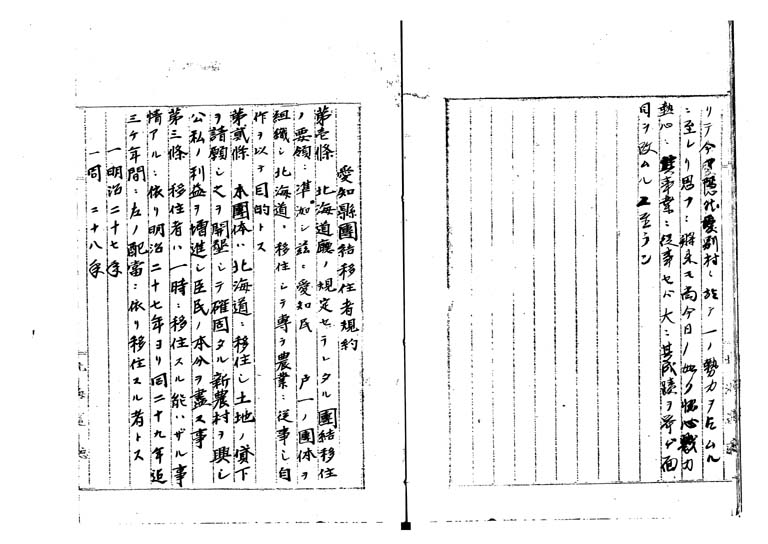 リテ今ヤ愛別村ニ於テ一ノ勢力ヲ占ムル
ニ至レリ思フニ将来モ尚今日ノ如ク協心戮力
熱心ニ其事業ニ従事セバ大ニ其成蹟ヲ挙ゲ面
目ヲ改ムルニ至ラン
愛知縣團結移住者規約
第壱條 北海道廳ノ規定セラレタル團結移住
ノ要領ニ準如シ茲ニ愛知民 戸一ノ團体ヲ
組織シ北海道ニ移住シテ専ラ農業ニ従事シ自
作ヲ以テ目的トス
第貳條 本團体ハ北海道ニ移住シ土地ノ貸下
ヲ請願シ之ヲ開墾シテ確固タル新農村ヲ興シ
公私ノ利益ヲ増進シ臣民ノ本分ヲ盡ス事
第三條 移住者ハ一時ニ移住スル能ハザル事
情アルニ依リ明治二十七年ヨリ同二十九年迄
三ケ年間ニ左ノ配當ニ依リ移住スル者トス
一明治二十七年
一同 二十八年